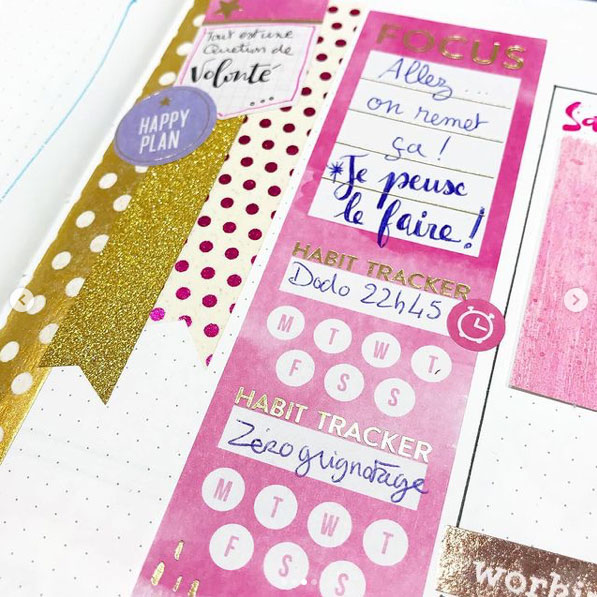 Tout est une
Question de
Volonté
...
HAPPY
PLAN
FOCUS
Allez...
on remet
ça !
*Je peux
le faire !
HABIT TRACKER
Dodo 22h45
M T W T
F S S
HABIT TRACKER
Zéro grignotage
M T W T
F S S
Sa
workin